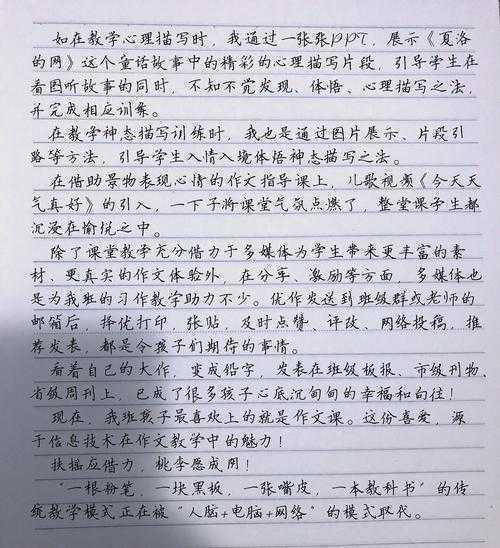 如在教学心理描写时，我通过一张张PPT，展示《夏洛
的网》这个童话故事中的精彩的心理描写片段，引导学生在
看图听故事的同时，不知不觉发现、体悟、心理描写之法，
并完成相应训练。
在教学神态描写训练时，我也是通过图片展示、片段引
路等方法，引导学生入情入境体悟神态描写之法。
在借助景物表现心情的作文指导课上，儿歌视频《今天天
气真好》的引入，一下子将课堂气氛点燃了，整堂课学生都
沉浸在愉悦之中。
除了课堂教学充分借力于多媒体为学生带来更丰富的素
材、更真实的作文体验外，在分享、激励等方面，多媒体也
是为我班的习作教学助力不少。优作发送到班级群或老师的
邮箱后，择优打印，张贴，及时点赞、评改、网络投稿，推
荐发表，都是令孩子们期待的事情。
看着自己的大作，变成铅字，发表在班级板报、市级刊物、
省级周刊上，已成了很多孩子心底沉甸甸的幸福和向往！
现在，我班孩子最喜欢上的就是作文课。这份喜爱，源
于信息技术在作文教学中的魅力！
扶摇应借力，桃李愿成阴！
“一根粉笔，一块黑板，一张嘴皮，一本教科书”的传
统教学模式正在被“人脑+电脑+网络”的模式取代。